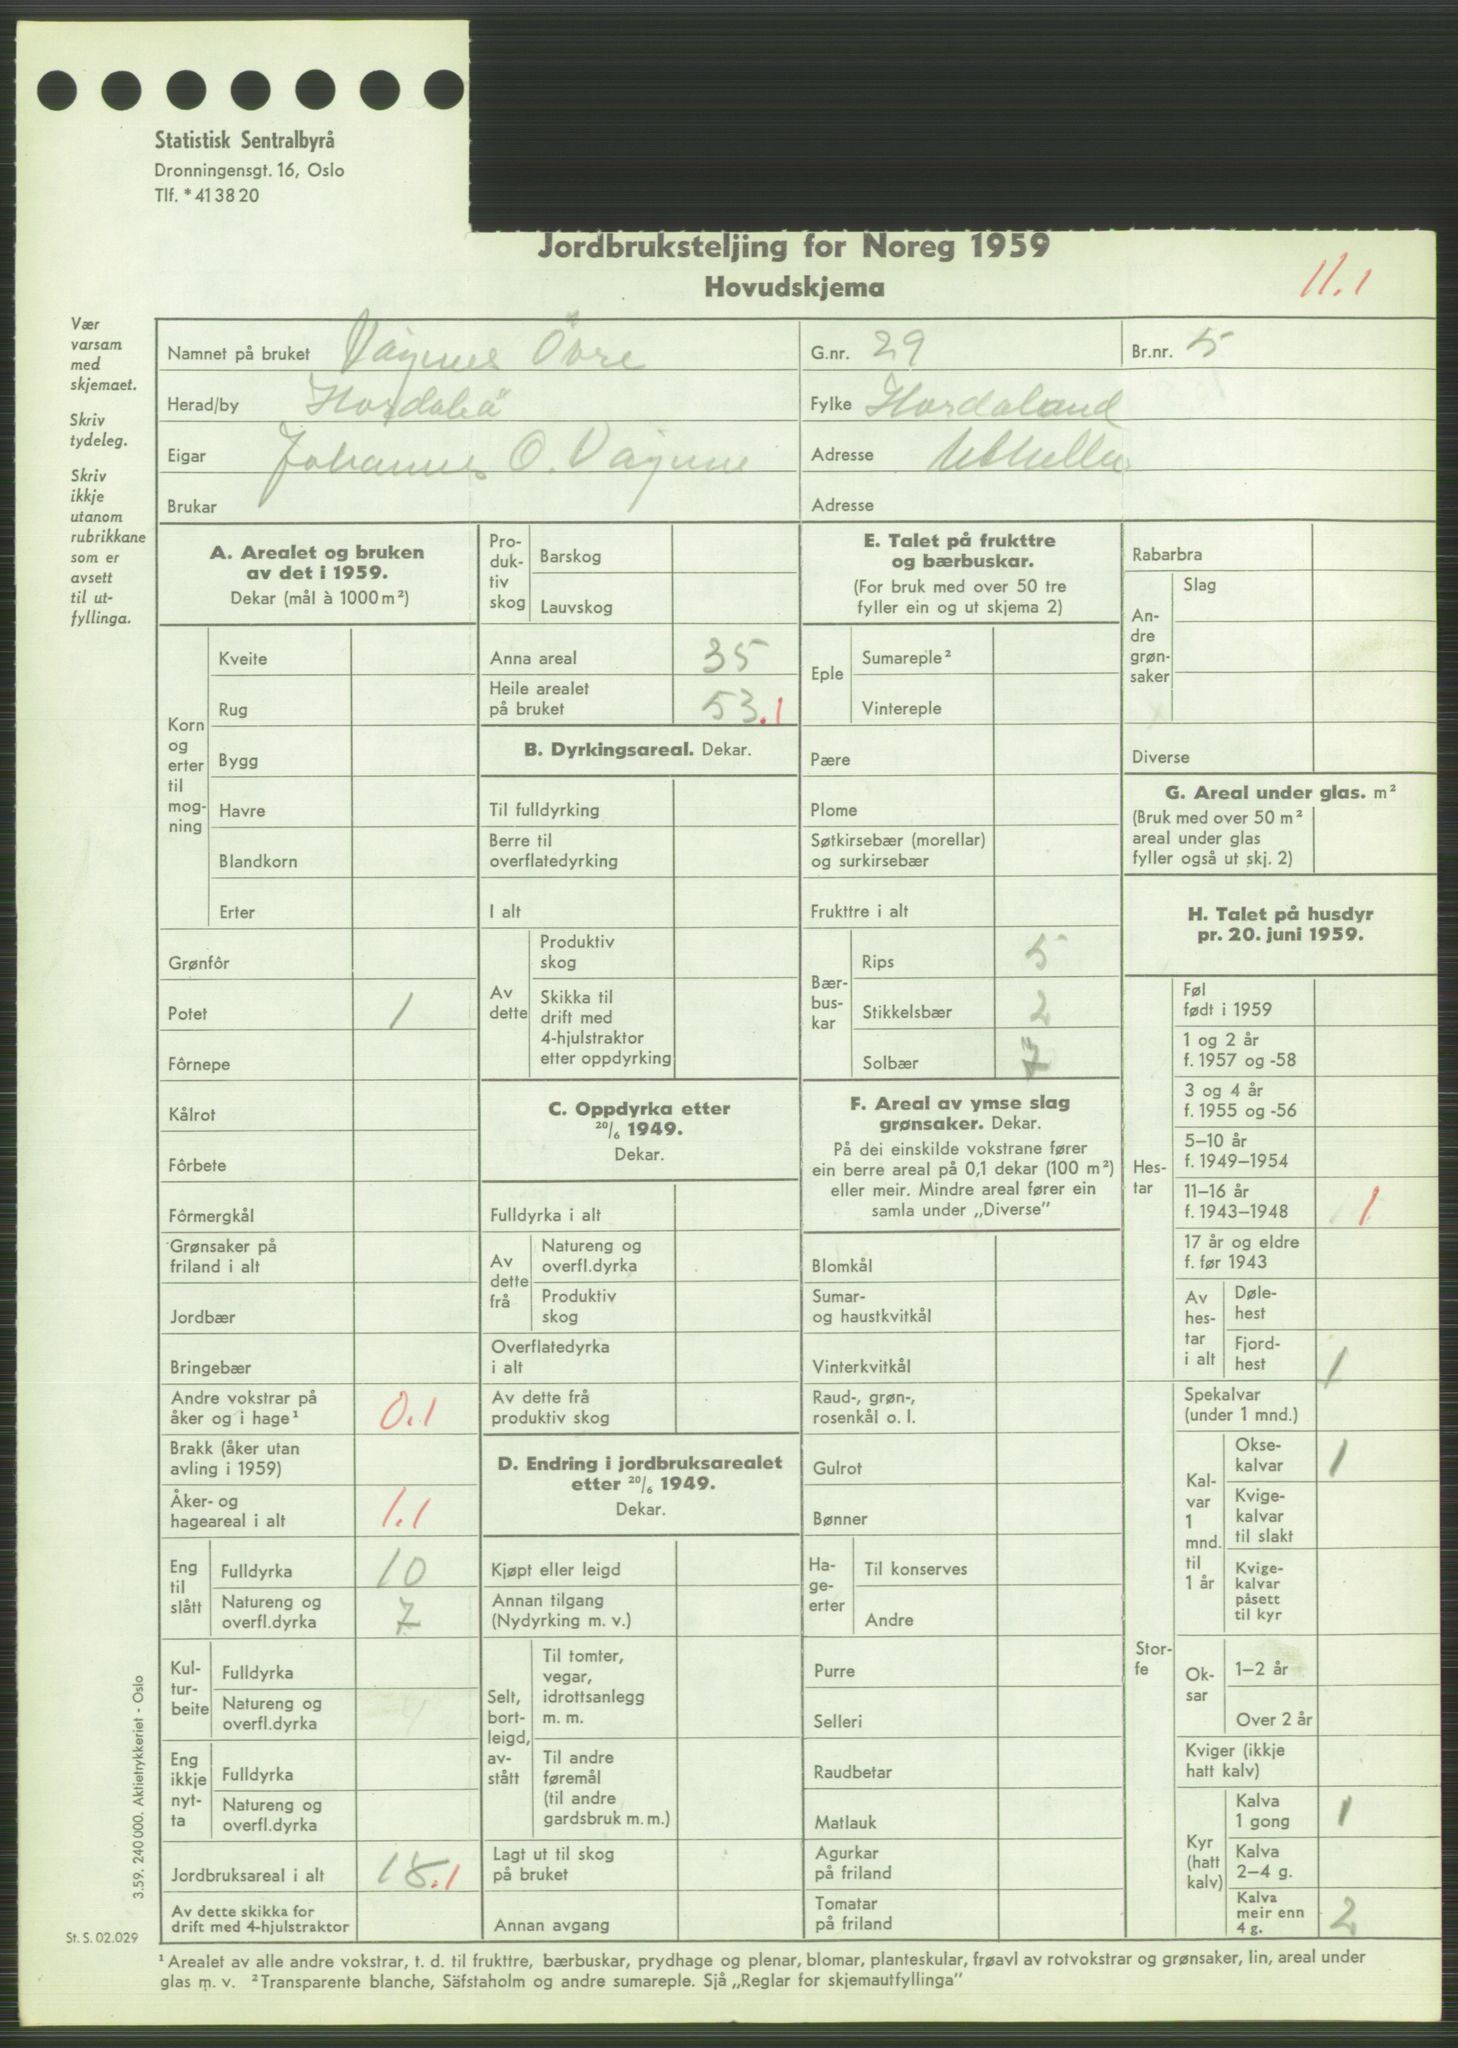 Statistisk Sentralbyrå
Dronningensgt. 16, Oslo
Tlf. * 41 38 20
Jordbruksteljing for Noreg 1959
Hovudskjema
11.1
Vær
varsam
med
skjemaet.
Skriv
tydeleg.
Skriv
ikkje
utanom
rubrikkane
som er
avsett
til ut-
fyllinga.
Namnet på bruket Vågnes Övre G.nr. 29 Br.nr. 5
Herad/by Hordabö Fylke Hordaland
Eigar Johannes O. Vågnes Adresse
Brukar Adresse
A. Arealet og bruken
av det i 1959.
Dekar (mål à 1000 m²)
Korn
og
erter
til
mog-
ning
Kveite
Rug
Bygg
Havre
Blandkorn
Erter
Grønfôr
Potet 1
Fôrnepe
Kålrot
Fôrbete
Fôrmergkål
Grønsaker på
friland i alt
Jordbær
Bringebær
Andre vokstrar på
åker og i hage¹ 0.1
Brakk (åker utan
avling i 1959)
Åker- og
hageareal i alt 1.1
Eng
til
slått
Fulldyrka 10
Natureng og
overfl.dyrka 7
Kul-
tur-
beite
Fulldyrka
Natureng og
overfl.dyrka
Eng
ikkje
nyt-
ta
Fulldyrka
Natureng og
overfl.dyrka
Jordbruksareal i alt 18.1
Av dette skikka for
drift med 4-hjulstraktor
Pro-
duk-
tiv
skog
Barskog
Lauvskog
Anna areal 35
Heile arealet
på bruket 53.1
B. Dyrkingsareal. Dekar.
Til fulldyrking
Berre til
overflatedyrking
I alt
Av
dette
Produktiv
skog
Skikka til
drift med
4-hjulstraktor
etter oppdyrking
C. Oppdyrka etter
20/6 1949.
Dekar.
Fulldyrka i alt
Av
dette
frå
Natureng og
overfl.dyrka
Produktiv
skog
Overflatedyrka
i alt
Av dette frå
produktiv skog
D. Endring i jordbruksarealet
etter 20/6 1949.
Dekar.
Kjøpt eller leigd
Annan tilgang
(Nydyrking m. v.)
Selt,
bort-
leigd,
av-
stått
Til tomter,
vegar,
idrottsanlegg
m. m.
Til andre
føremål
(til andre
gardsbruk m. m.)
Lagt ut til skog
på bruket
Annan avgang
E. Talet på frukttre
og bærbuskar.
(For bruk med over 50 tre
fyller ein og ut skjema 2)
Eple
Sumareple²
Vintereple
Pære
Plome
Søtkirsebær (morellar)
og surkirsebær
Frukttre i alt
Bær-
bus-
kar
Rips 5
Stikkelsbær 2
Solbær 7
F. Areal av ymse slag
grønsaker. Dekar.
På dei einskilde vokstrane fører
ein berre areal på 0,1 dekar (100 m²)
eller meir. Mindre areal fører ein
samla under „Diverse”
Blomkål
Sumar-
og haustkvitkål
Vinterkvitkål
Raud-, grøn-,
rosenkål o. l.
Gulrot
Bønner
Ha-
ge-
erter
Til konserves
Andre
Purre
Selleri
Raudbetar
Matlauk
Agurkar
på friland
Tomatar
på friland
Rabarbra
An-
dre
grøn-
saker
Slag
Diverse
G. Areal under glas. m²
(Bruk med over 50 m²
areal under glas
fyller også ut skj. 2)
H. Talet på husdyr
pr. 20. juni 1959.
Hes-
tar
Føl
født i 1959
1 og 2 år
f. 1957 og -58
3 og 4 år
f. 1955 og -56
5–10 år
f. 1949–1954
11–16 år
f. 1943–1948 1
17 år og eldre
f. før 1943
Av
hes-
tar
i alt
Døle-
hest
Fjord-
hest 1
Stor-
fe
Spekalvar
(under 1 mnd.)
Kal-
var
1
mnd.
til
1 år
Okse-
kalvar 1
Kvige-
kalvar
til slakt
Kvige-
kalvar
påsett
til kyr
Ok-
sar
1–2 år
Over 2 år
Kviger (ikkje
hatt kalv)
Kyr
(hatt
kalv)
Kalva
1 gong 1
Kalva
2–4 g.
Kalva
meir enn
4 g. 2
3.59. 240 000. Aktietrykkeriet - Oslo
St. S. 02.029
¹ Arealet av alle andre vokstrar, t. d. til frukttre, bærbuskar, prydhage og plenar, blomar, planteskular, frøavl av rotvokstrar og grønsaker, lin, areal under
glas m. v. ² Transparente blanche, Säfstaholm og andre sumareple. Sjå „Reglar for skjemautfyllinga”